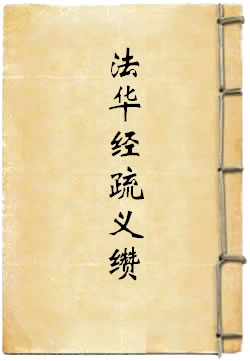 法华经疏义缵